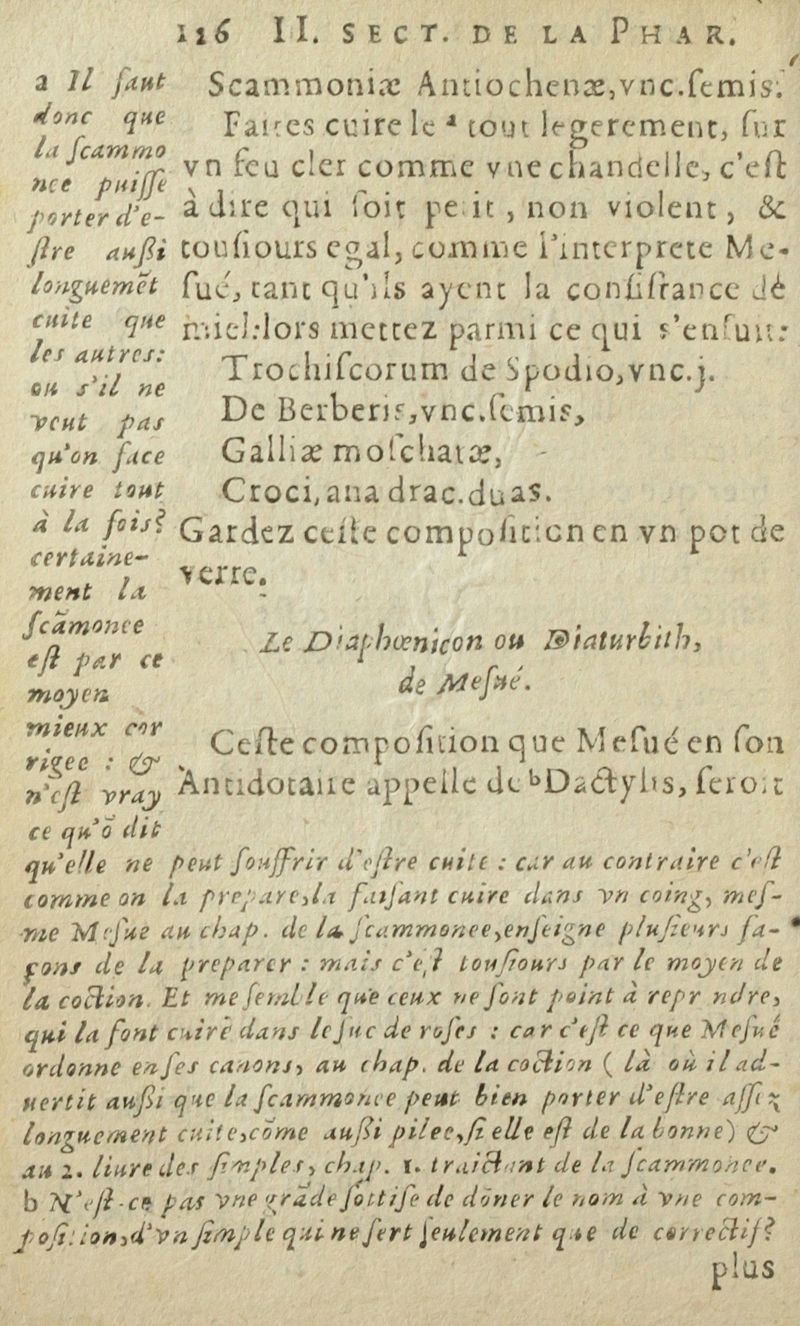 116 II. SECT. DE LA PHAR.
Scammoniæ Antiochenæ,vnc.ſemis.
Faites cuire le ᵃ tout legerement, ſur
vn feu cler comme vne chandelle, c'eſt
à dire qui ſoit petit, non violent, &
touſiours egal, comme l'interprete Me-
ſué, tant qu'ils ayent la conſiſtance dé
miel:lors mettez parmi ce qui s'enſuit:
Trochiſcorum de Spodio,vnc.j.
De Berberis,vnc.ſemis,
Galliæ moſchatæ,
Croci,ana drac.duas.
Gardez ceſte compoſition en vn pot de
verre.
Le Diaphœnicon ou Diaturbith,
de Meſué.
Ceſte compoſition que Meſué en ſon
Antidotaire appelle de ᵇDactylis, ſeroit
a Il faut
donc que
la ſcammo
nee puiſſe
porter d'e-
ſtre auſſi
longuemẽt
cuite que
les autres:
ou s'il ne
veut pas
qu'on face
cuire tout
à la fois?
certaine-
ment la
ſcãmonee
eſt par ce
moyen
mieux cor
rigee : &
n'eſt vray
ce qu'õ dit
qu'elle ne peut ſouffrir d'eſtre cuite : car au contraire c'eſt
comme on la prepare,la faiſant cuire dans vn coing, meſ-
me Meſue au chap. de la ſcammonee,enſeigne pluſieurs fa-
çons de la preparer : mais c'eſt touſiours par le moyen de
la coction. Et me ſemble que ceux ne ſont point à reprendre,
qui la font cuire dans le ſuc de roſes : car c'eſt ce que Meſué
ordonne en ſes canons, au chap. de la coction ( là où il ad-
uertit auſſi que la ſcammonee peut bien porter d'eſtre aſſez
longuement cuite,cõme auſſi pilee,ſi elle eſt de la bonne) &
au 2. liure des ſimples, chap. 1. traictant de la ſcammonee.
b N'eſt-ce pas vne grãde ſottiſe de dõner le nom à vne com-
poſition,d'vn ſimple qui ne ſert ſeulement que de correctif?
plus